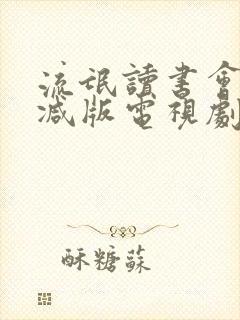 流氓讀書會
减版電視劇
酥糖蘇